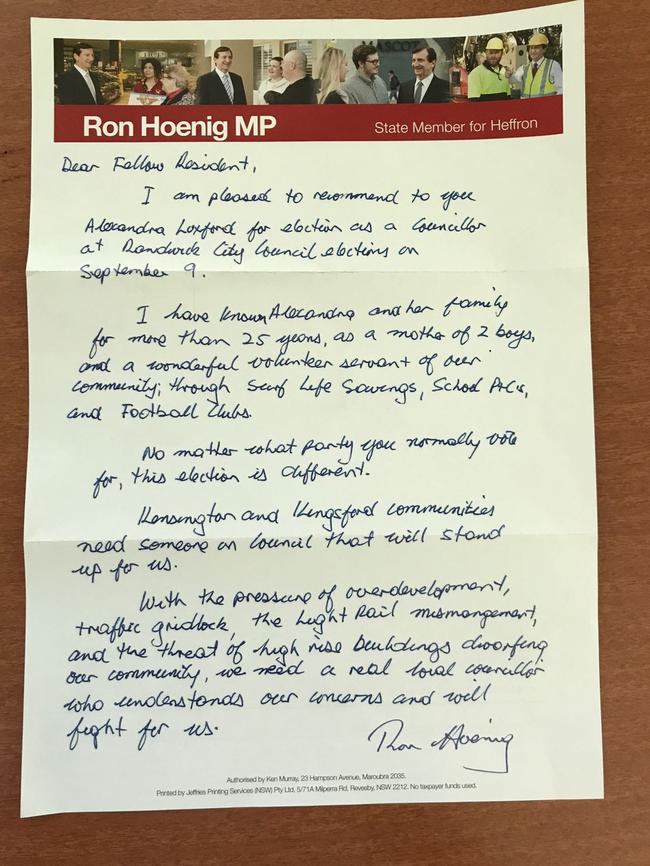 MASCOT
Ron Hoenig MP
State Member for Heffron
Dear Fellow Resident,
I am pleased to recommend to you
Alexandra Luxford for election as a Councillor
at Randwick City Council elections on
September 9.
I have known Alexandra and her family
for more than 25 years, as a mother of 2 boys,
and a wonderful volunteer servant of our
community; through Surf Life Savings, School P+Cs,
and Football Clubs.
No matter what party you normally vote
for, this election is different.
Kensington and Kingsford communities
need someone on Council that will stand
up for us.
With the pressure of overdevelopment,
traffic gridlock, the Light Rail mismangement,
and the threat of high rise buildings dwarfing
our community, we need a real local councillor
who understands our concerns and will
fight for us.
Ron Hoenig
Authorised by Ken Murray, 23 Hampson Avenue, Maroubra 2035.
Printed by Jeffries Printing Services (NSW) Pty Ltd, 5/71A Milperra Rd, Revesby, NSW 2212. No taxpayer funds used.